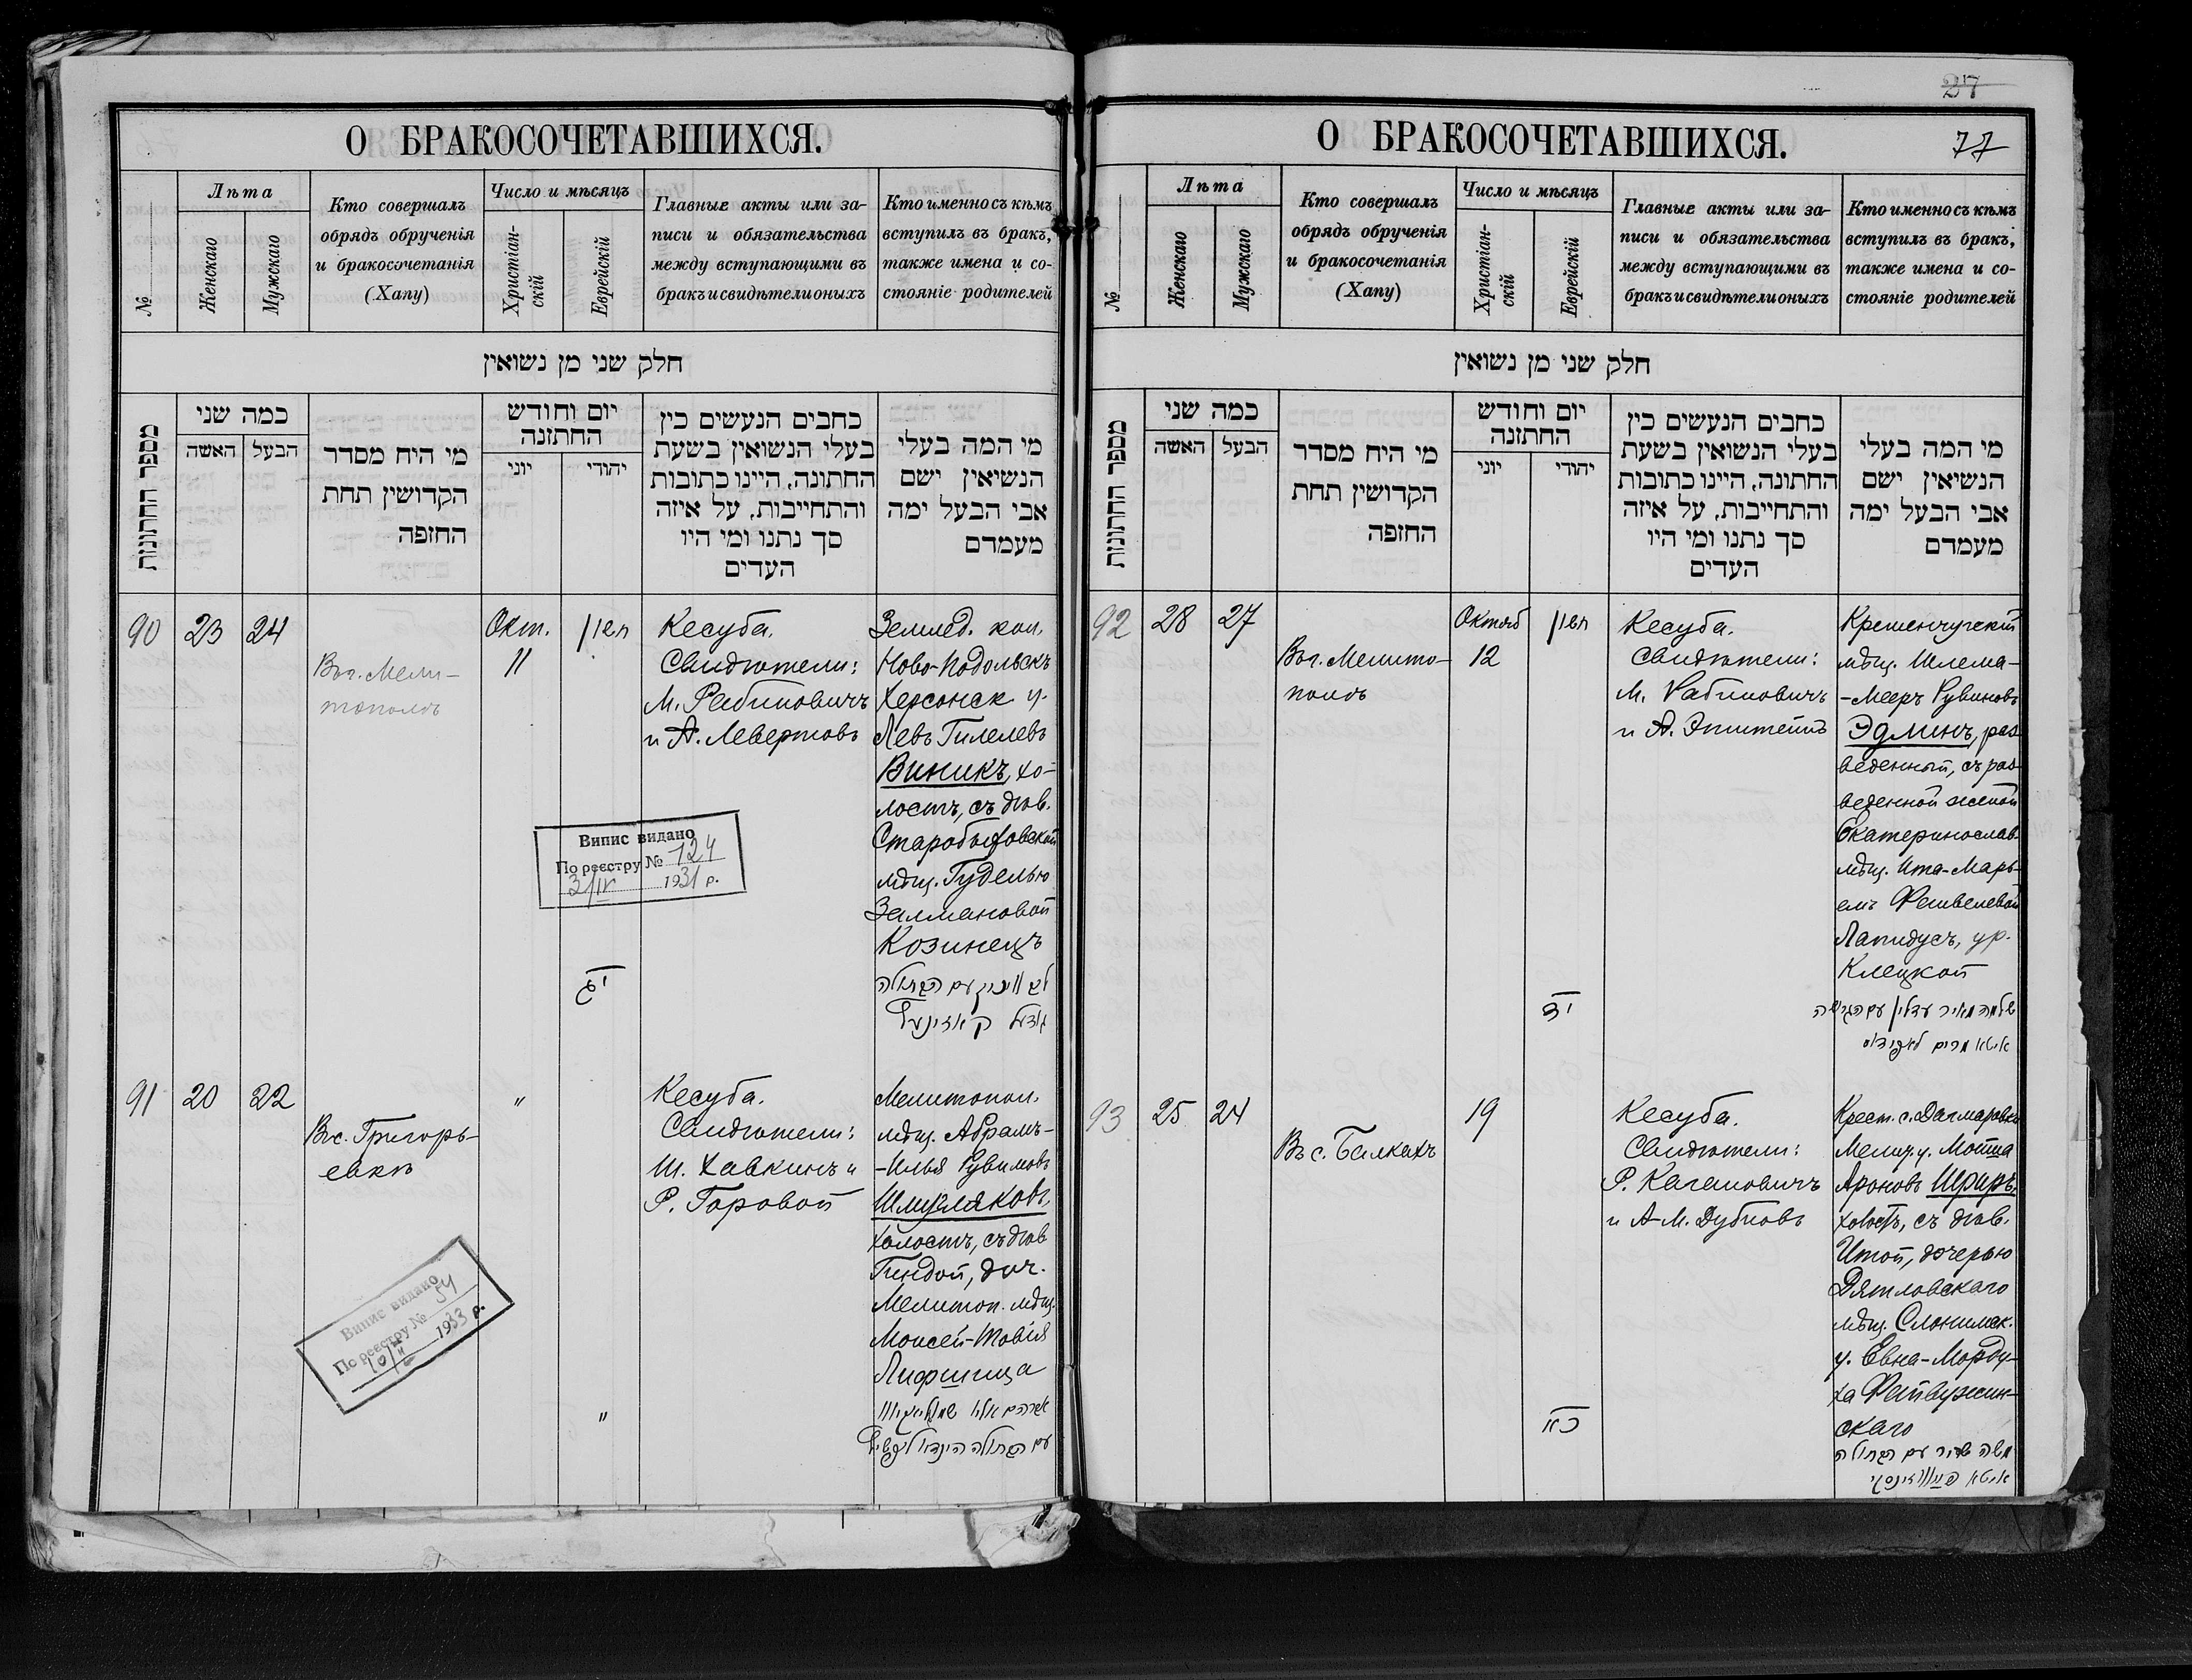 27
О БРАКОСОЧЕТАВШИХСЯ.
№
Лѣта
Женскаго
Мужскаго
Кто совершалъ
обрядъ обрученія
и бракосочетанія
(Хапу)
Число и мѣсяцъ
Христіан-
скій
Еврейскій
Главные акты или за-
писи и обязательства
между вступающими въ
бракъ и свидѣтели оныхъ
Кто именно съ кѣмъ
вступилъ въ бракъ,
также имена и со-
стояніе родителей
חלק שני מן נשואין
מספר החתונות
כמה שני
האשה
הבעל
מי היח מסדר
הקדושין תחת
החופה
יום וחודש
החתונה
יוני
יהודי
כתבים הנעשים בין
בעלי הנשואין בשעת
החתונה, היינו כתובות
והתחייבות, על איזה
סך נתנו ומי היו
העדים
מי המה בעלי
הנשיאין ישם
אבי הבעל ימה
מעמדם
90
23
24
Въ г. Мели-
тополѣ
Окт.
11
חשון
יג
Кесуба.
Свидѣтели:
М. Рабиновичъ
и А. Левертовъ
Землед. кол.
Ново-Подольскъ
Херсонск у.
Левъ Гилелевъ
Виникъ, хо-
лостъ, съ дѣв.
Старобыховской
мѣщ. Гуделью
Залмановой
Козинецъ
לב וויניק עם הבתולה
גודעל קאזינעץ
Випис видано
По реєстру № 124
3/IV 1931 р.
91
20
22
Въ с. Григорь-
евкѣ
"
"
Кесуба.
Свидѣтели:
Ш. Хавкинъ и
Р. Горовой
Мелитопол.
мѣщ. Абрамъ-
-Илья Рувимовъ
Шмуляковъ,
холостъ, съ дѣв
Гиндой, доч.
Мелитоп. мѣщ.
Моисей-Товія
Лифшица
אברהם אליי שמוליאקוו
עם הבתולה הינדא ליפשיץ
Випис видано
По реєстру № 54
10/II 1933 р.
О БРАКОСОЧЕТАВШИХСЯ.
77
№
Лѣта
Женскаго
Мужскаго
Кто совершалъ
обрядъ обрученія
и бракосочетанія
(Хапу)
Число и мѣсяцъ
Христіан-
скій
Еврейскій
Главные акты или за-
писи и обязательства
между вступающими въ
бракъ и свидѣтели оныхъ
Кто именно съ кѣмъ
вступилъ въ бракъ,
также имена и со-
стояніе родителей
חלק שני מן נשואין
מספר החתונות
כמה שני
האשה
הבעל
מי היח מסדר
הקדושין תחת
החופה
יום וחודש
החתונה
יוני
יהודי
כתבים הנעשים בין
בעלי הנשואין בשעת
החתונה, היינו כתובות
והתחייבות, על איזה
סך נתנו ומי היו
העדים
מי המה בעלי
הנשיאין ישם
אבי הבעל ימה
מעמדם
92
28
27
Въ г. Мелито-
полѣ
Октяб
12
חשון
יד
Кесуба.
Свидѣтели:
М. Рабиновичъ
и А. Эпштейнъ
Кременчугскій
мѣщ. Шлема-
-Мееръ Рувиновъ
Эдлинъ, раз
веденный, съ раз
веденной женой
Екатеринослав.
мѣщ. Ита-Марь-
емъ Фейвелевой
Лапидусъ, ур.
Клецкой
שלמה מאיר עדלין עם הגרושה
איטא מרים לאפידוס
93
25
24
Въ с. Балкахъ
19
כא
Кесуба.
Свидѣтели:
Р. Кагановичъ
и А-М. Дубновъ
Крест. с. Дагмаровки
Мелит. у. Мойша
Ароновъ Шриръ,
холостъ, съ дѣв.
Итой, дочерью
Дятловскаго
мѣщ. Слонимск.
у. Евна-Морду-
ха Фейвужин-
скаго
משה שריר עם הבתולה